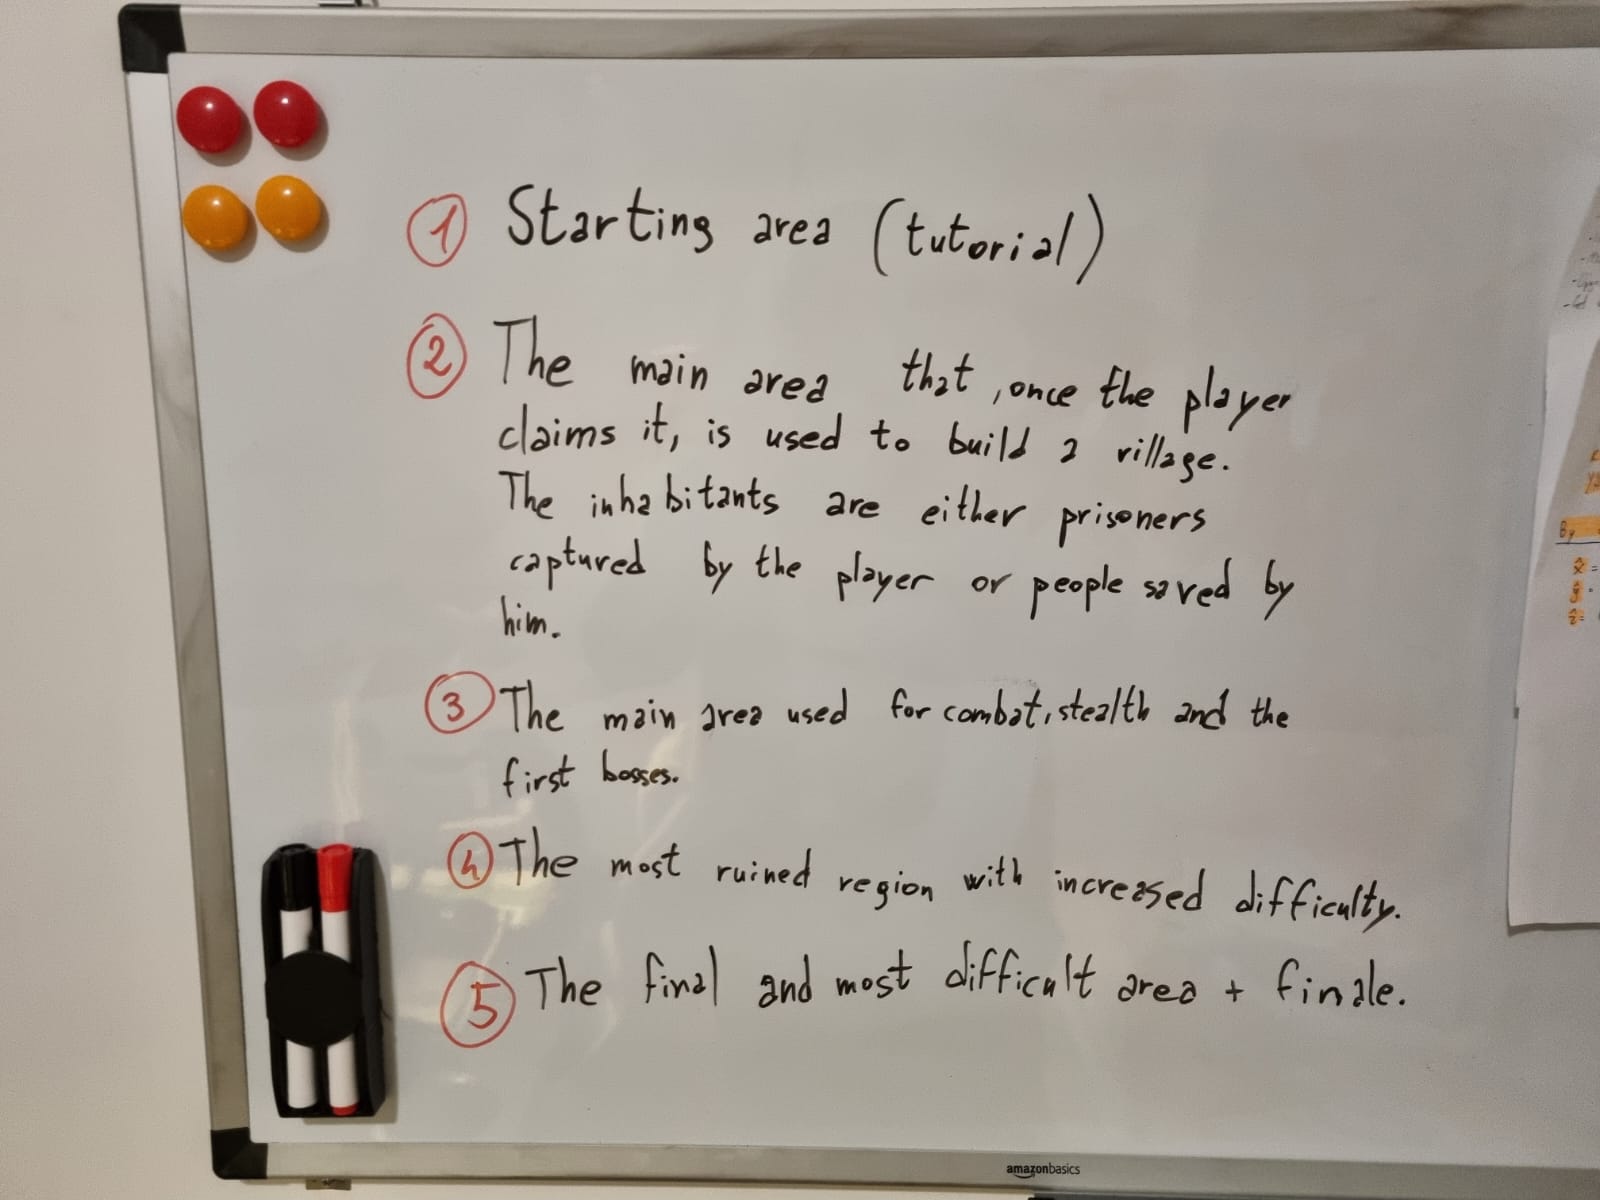 1 Starting area (tutorial)
2 The main area that, once the player
claims it, is used to build a village.
The inhabitants are either prisoners
captured by the player or people saved by
him.
3 The main area used for combat, stealth and the
first bosses.
4 The most ruined region with increased difficulty.
5 The final and most difficult area + finale.
By
x̂ =
ŷ
ẑ =
amazonbasics